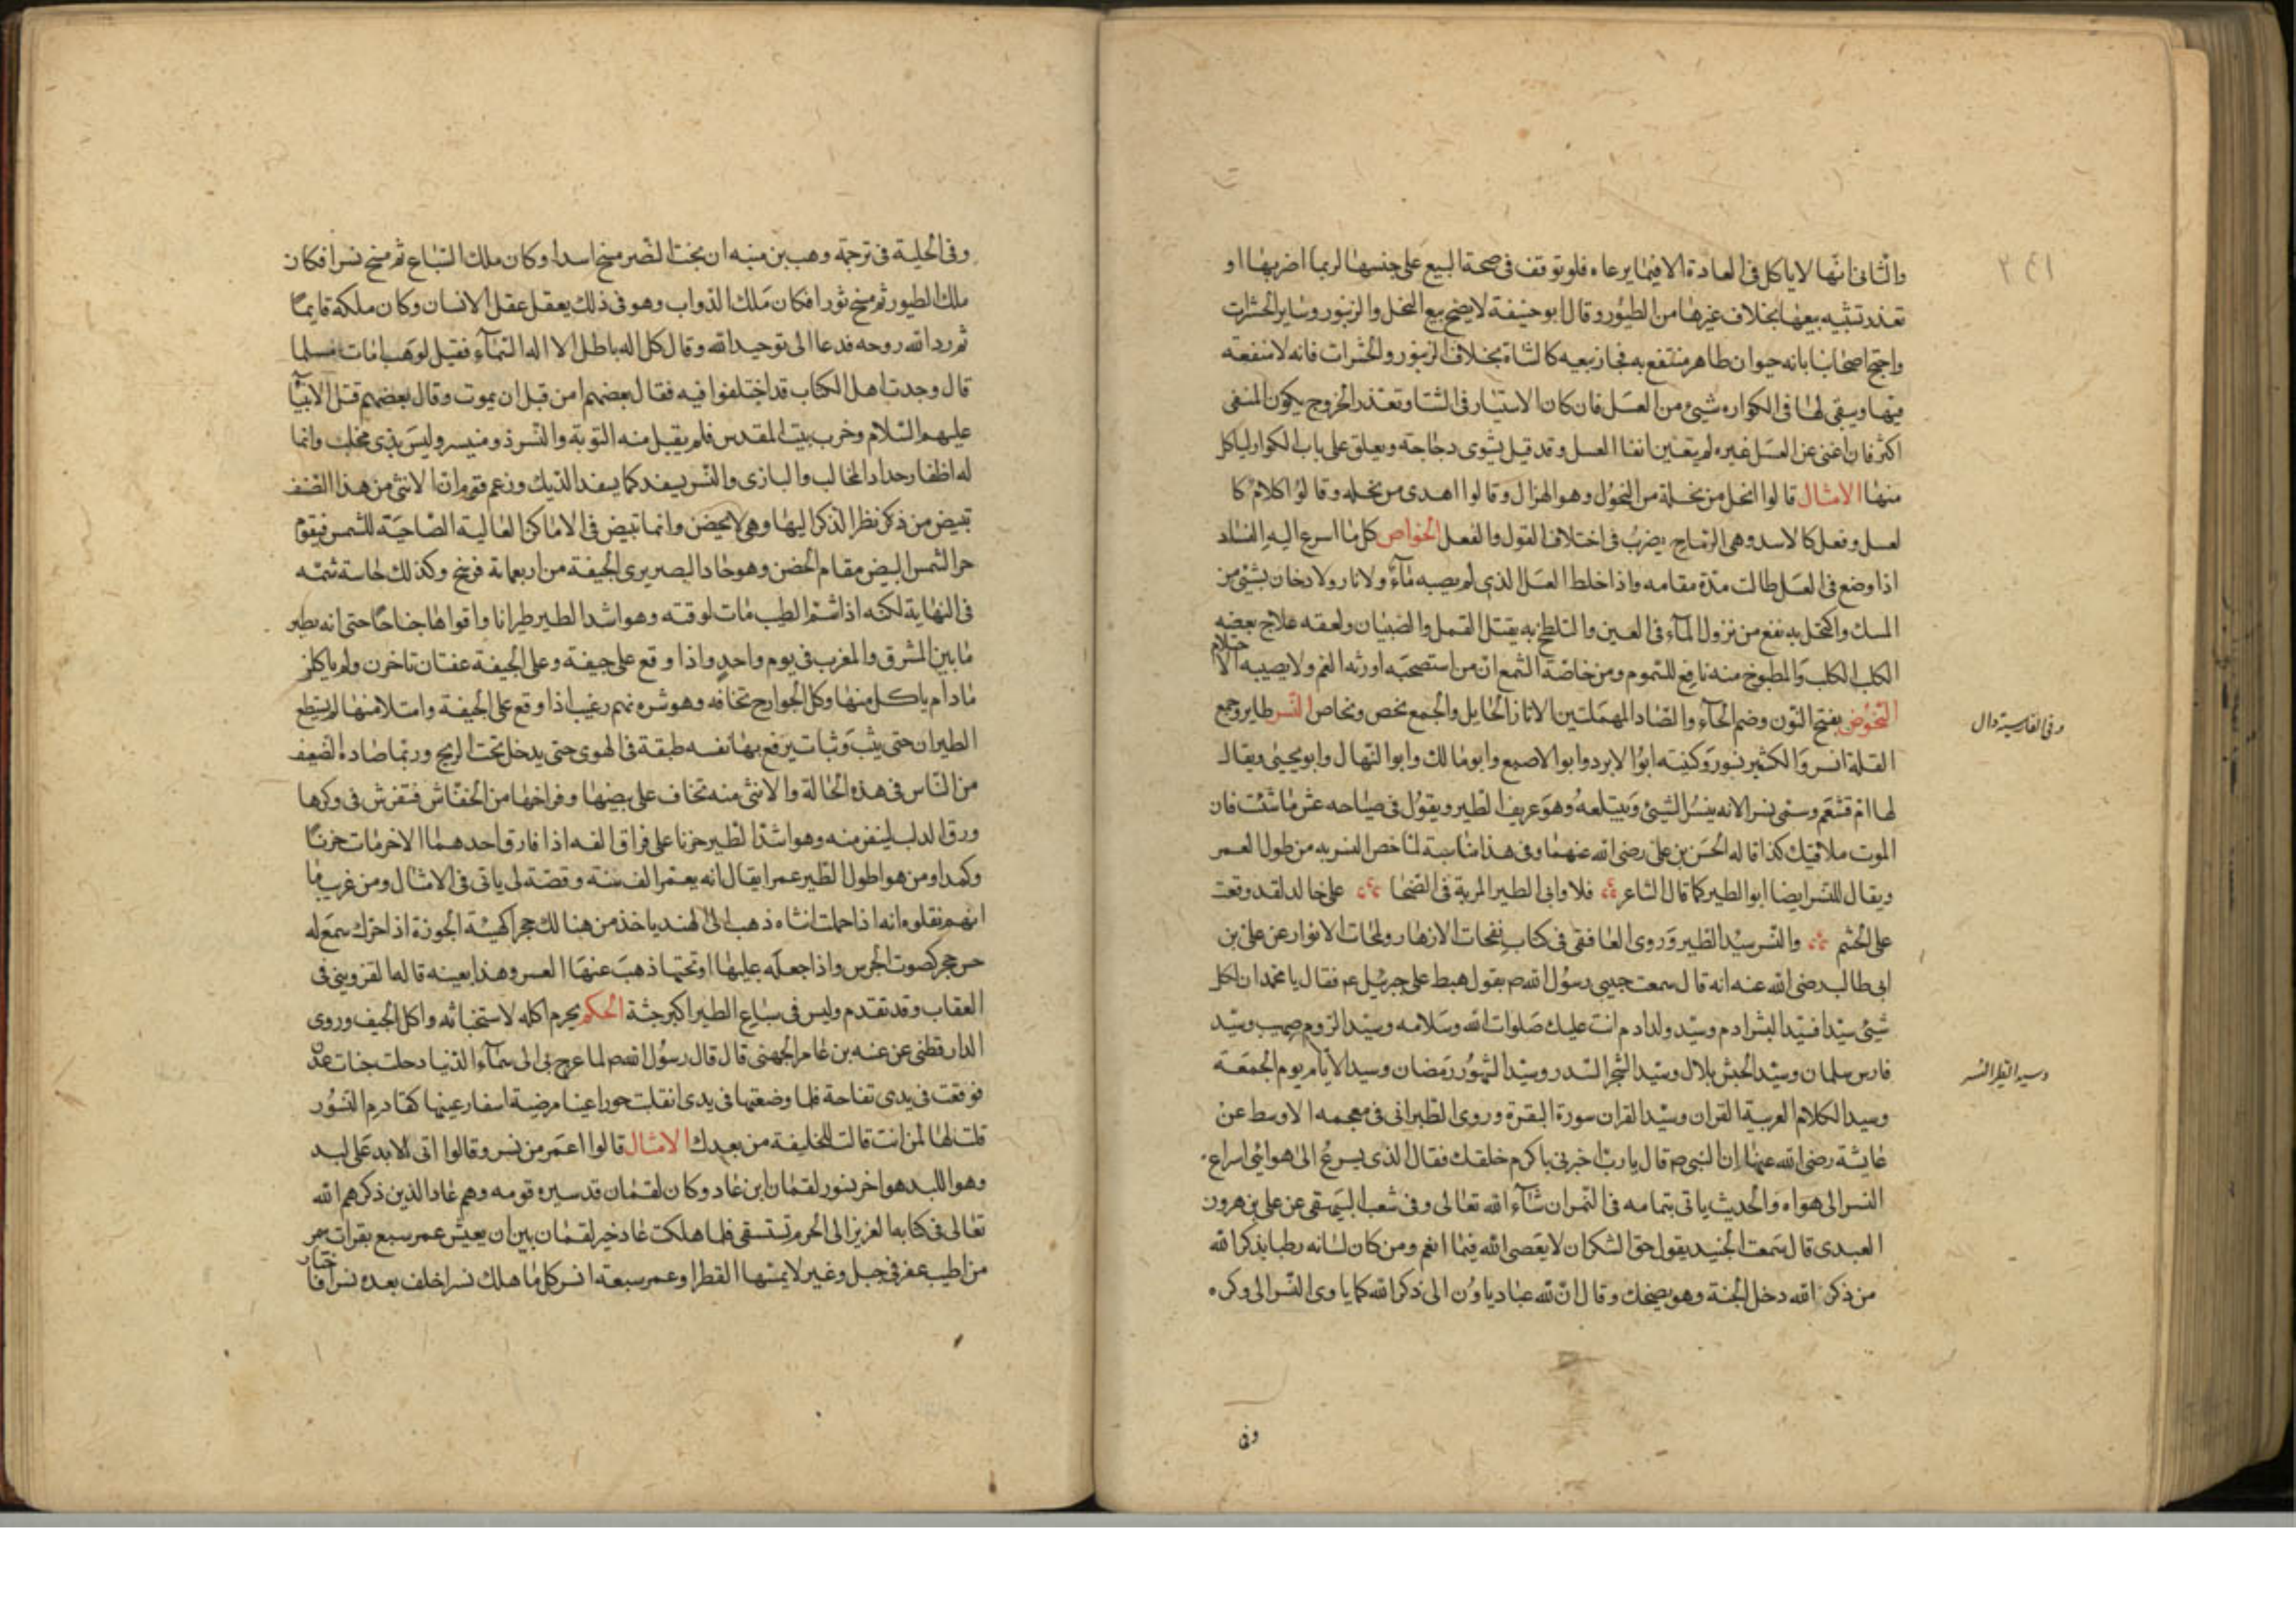 والثاني انها لا ياكل في العادة الا فيما يرعاه فلو توقف في صحة البيع على حبسها لربما اضر بها او
تعذر تثبيه بيعها بخلاف غيرها من الطيور وقال ابو حنيفة لا يصح بيع النحل والزنبور وساير الحشرات
واحتج اصحابنا بانه حيوان طاهر منتفع به فجاز بيعه كالشاة بخلاف الزنبور والحشرات فانه لا منفعة
فيها ويبقى لها في الكواره شيئ من العسل فان كان الاستيار في الشتا وتعذر الخروج يكون المنفى
اكثر فان اغنى عن العسل غيره لم يتعين ابقا العسل وقد قيل يشوى دجاجة ويعلق على باب الكوار لياكل
منها الامثال قالوا انحل من نحلة من النحول وهو الهزال وقالوا اهدى من نحله وقالوا كلام كا
لعسل وفعل كالاسد وهي الرماح يضرب في اختلاف القول والفعل الخواص كل ما اسرع اليه الفساد
اذا وضع في العسل طالت مدة مقامه واذا خلط العسل الذي لم يصبه ماء ولا نار ولا دخان بشئ من
المسك واكتحل به نفع من نزول الماء في العين والتلطخ به يقتل القمل والصيبان ولعقه علاج بعضه
الكلب الكلب والمطبوخ منه نافع للسموم ومن خاصة الشمع ان من استصحبه اورثه الغم ولا يصيبه الا
حتلام
النحوص بفتح النون وضم الحاء والصاد المهملتين الاتان الحايل والجمع نحص ونحاص النسر طاير وجمع
القلة انسر والكثير نسور وكنيته ابو الابرد وابو الاصبع وابو مالك وابو النهال وابو يحيى ويقال
لها ام قشعم وسمى نسرا لانه ينسر الشيئ ويبتلعه وهو عريف الطير ويقول في صياحه عش ما شئت فان
الموت ملاقيك كذا قاله الحسن بن علي رضي الله عنهما وفي هذا مناسبة لما خص النسر به من طول العمر
ويقال للنسر ايضا ابو الطير كما قال الشاعر فلا وابى الطير المربة في الضحا على خالد لقد وقعت
على لحم والنسر سيد الطير وروى الغافقى في كتاب نفحات الازهار ولمحات الانوار عن علي بن
ابى طالب رضي الله عنه انه قال سمعت حبيبي رسول الله صم يقول هبط علي جبرئيل عم فقال يا محمد ان لكل
شيئ سيدا فسيد البشر ادم وسيد ولد ادم انت عليك صلوات الله وسلامه وسيد الروم صهيب وسيد
فارس سلمان وسيد الحبش بلال وسيد الشجر السدر وسيد الشهور رمضان وسيد الايام يوم الجمعة
وسيد الكلام العربية القران وسيد القران سورة البقرة وروى الطبراني في معجمه الاوسط عن
عايشة رضي الله عنها ان النبي صم قال يا رب اخبرني باكرم خلقك فقال الذي يسرع الى هوائي اسراع
النسر الى هواه والحديث ياتى بتمامه في النمر ان شاء الله تعالى وفي شعب البيهقى عن علي بن هرون
العبدى قال سمعت الجنيد يقول حق الشكر ان لا يعصى الله فيما انعم ومن كان لسانه رطبا بذكر الله
من ذكر الله دخل الجنة وهو يضحك وقال ان لله عبادا ياوون الى ذكر الله كما ياوى النسر الى وكره
وفي
وفي الفارسية دال
وسيد الطير النسر
وفي الحلية في ترجمة وهب بن منبه ان بخت النصر مسخ اسدا وكان ملك السباع ثم مسخ نسرا فكان
ملك الطيور ثم مسخ ثورا فكان ملك الدواب وهو في ذلك يعقل عقل الانسان وكان ملكه قايما
ثم رد الله روحه فدعا الى توحيد الله وقال كل اله باطل الا اله السماء فقيل لوهب امات مسلما
قال وجدت اهل الكتاب قد اختلفوا فيه فقال بعضهم امن قبل ان يموت وقال بعضهم قتل الانبيا
عليهم السلام وخرب بيت المقدس فلم يقبل منه التوبة والنسر ذو منيسر وليس بذى مخلب وانما
له اظفار حداد المخالب والبازى والنسر يسفد كما يسفد الديك وزعم قوم ان الانثى من هذا الصنف
تبيض من ذكر نظر الذكر اليها وهي لا تحضن وانما تبيض في الاماكن العالية الضاحية للشمس فيقوم
حر الشمس للبيض مقام الحضن وهو حاد البصر يرى الجيفة من اربعماية فرسخ وكذلك حاسة شمه
في النهاية لكنه اذا اشتم الطيب مات لوقته وهو اشد الطير طيرانا واقواها جناحا حتى انه يطير
ما بين المشرق والمغرب في يوم واحد واذا وقع على جيفة وعلى الجيفة عقبان تاخرن ولم ياكلن
ما دام ياكل منها وكل الجوارح تخافه وهو شره نهم رغيب اذا وقع على الجيفة وامتلا منها لم يستطع
الطيران حتى يثب وثبات يرفع بها نفسه طبقة في الهوى حتى يدخل تحت الريح وربما صاده الضعيف
من الناس في هذه الحالة والانثى منه تخاف على بيضها وفراخها من الخفاش فتفرش في وكرها
ورق الدلب لينفر منه وهو اشد الطير حزنا على فراق الفه اذا فارق احدهما الاخر مات حزنا
وكمدا ومن هو اطول الطير عمرا يقال انه يعمر الف سنة وقصة لبد ياتى في الامثال ومن غريب ما
انهم نقلوه انه اذا حملت انثاه ذهب الى الهند ياخذ من هنالك حجرا كهيئة الجوزة اذا حرك سمع له
حس حجر كصوت الجرس واذا جعله عليها او تحتها ذهب عنها العسر وهذا بعينه قاله القزويني في
العقاب وقد تقدم وليس في سباع الطير اكبر جثة الحكم يحرم اكله لاستخباثه واكل الجيف وروى
الدارقطني عن عقبه بن عامر الجهني قال قال رسول الله صم لما عرج بى الى سماء الدنيا دخلت جنات عدن
فوقعت في يدى تفاحة فلما وضعتها في يدى انقلبت حورا عينا مرضية اسفار عينها كقادم النسور
قلت لها لمن انت قالت للخليفة من بعدك الامثال قالوا اعمر من نسر وقالوا اتى الابد على لبد
وهو اللبد هو اخر نسور لقمان ابن عاد وكان لقمان قد سيره قومه وهم عاد الذين ذكرهم الله
تعالى في كتابه العزيز الى الحرم تستسقى فلما هلكت عاد خير لقمان بين ان يعيش عمر سبع بقرات سمر
من اطيب عفر في جبل وغير لا يمسها القطر او عمر سبعة انسر كل ما هلك نسر اخلف بعده نسر فا
ختار